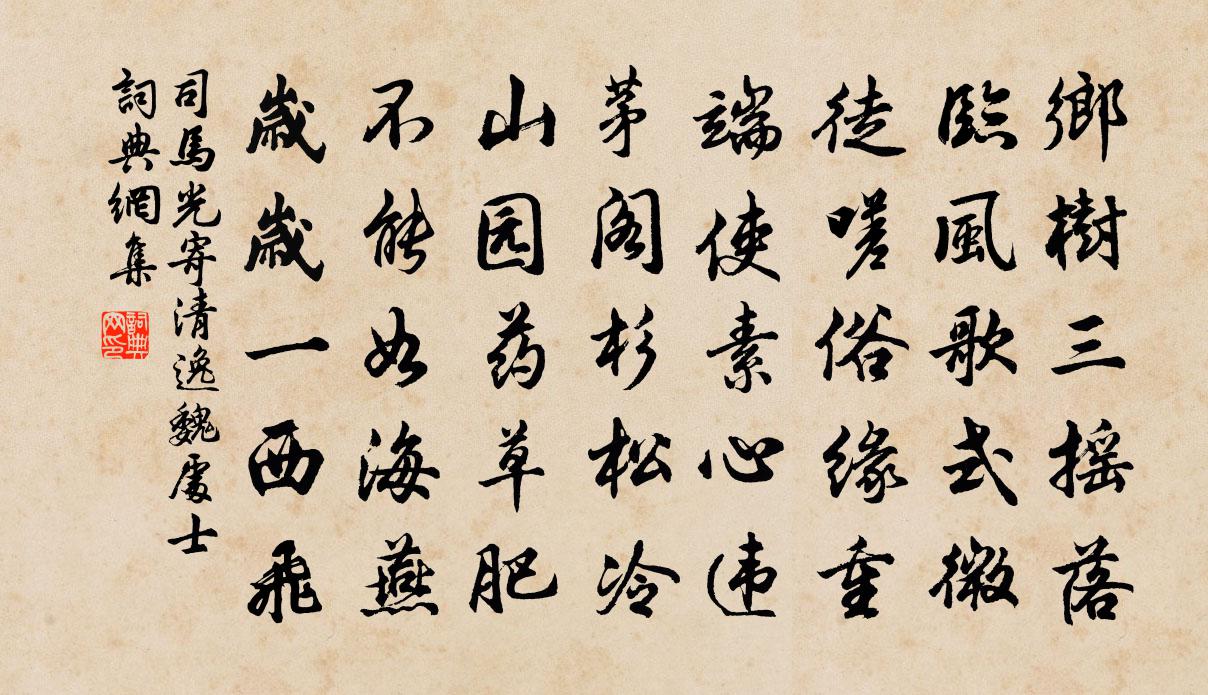 鄉樹三摇落
臨風歌式微
徒嗟俗緣重
端使素心违
茅阁杉松冷
山园药草肥
不能如海燕
歲歲一西飛
司馬光寄清逸魏處士
詞典網集
詞典网印